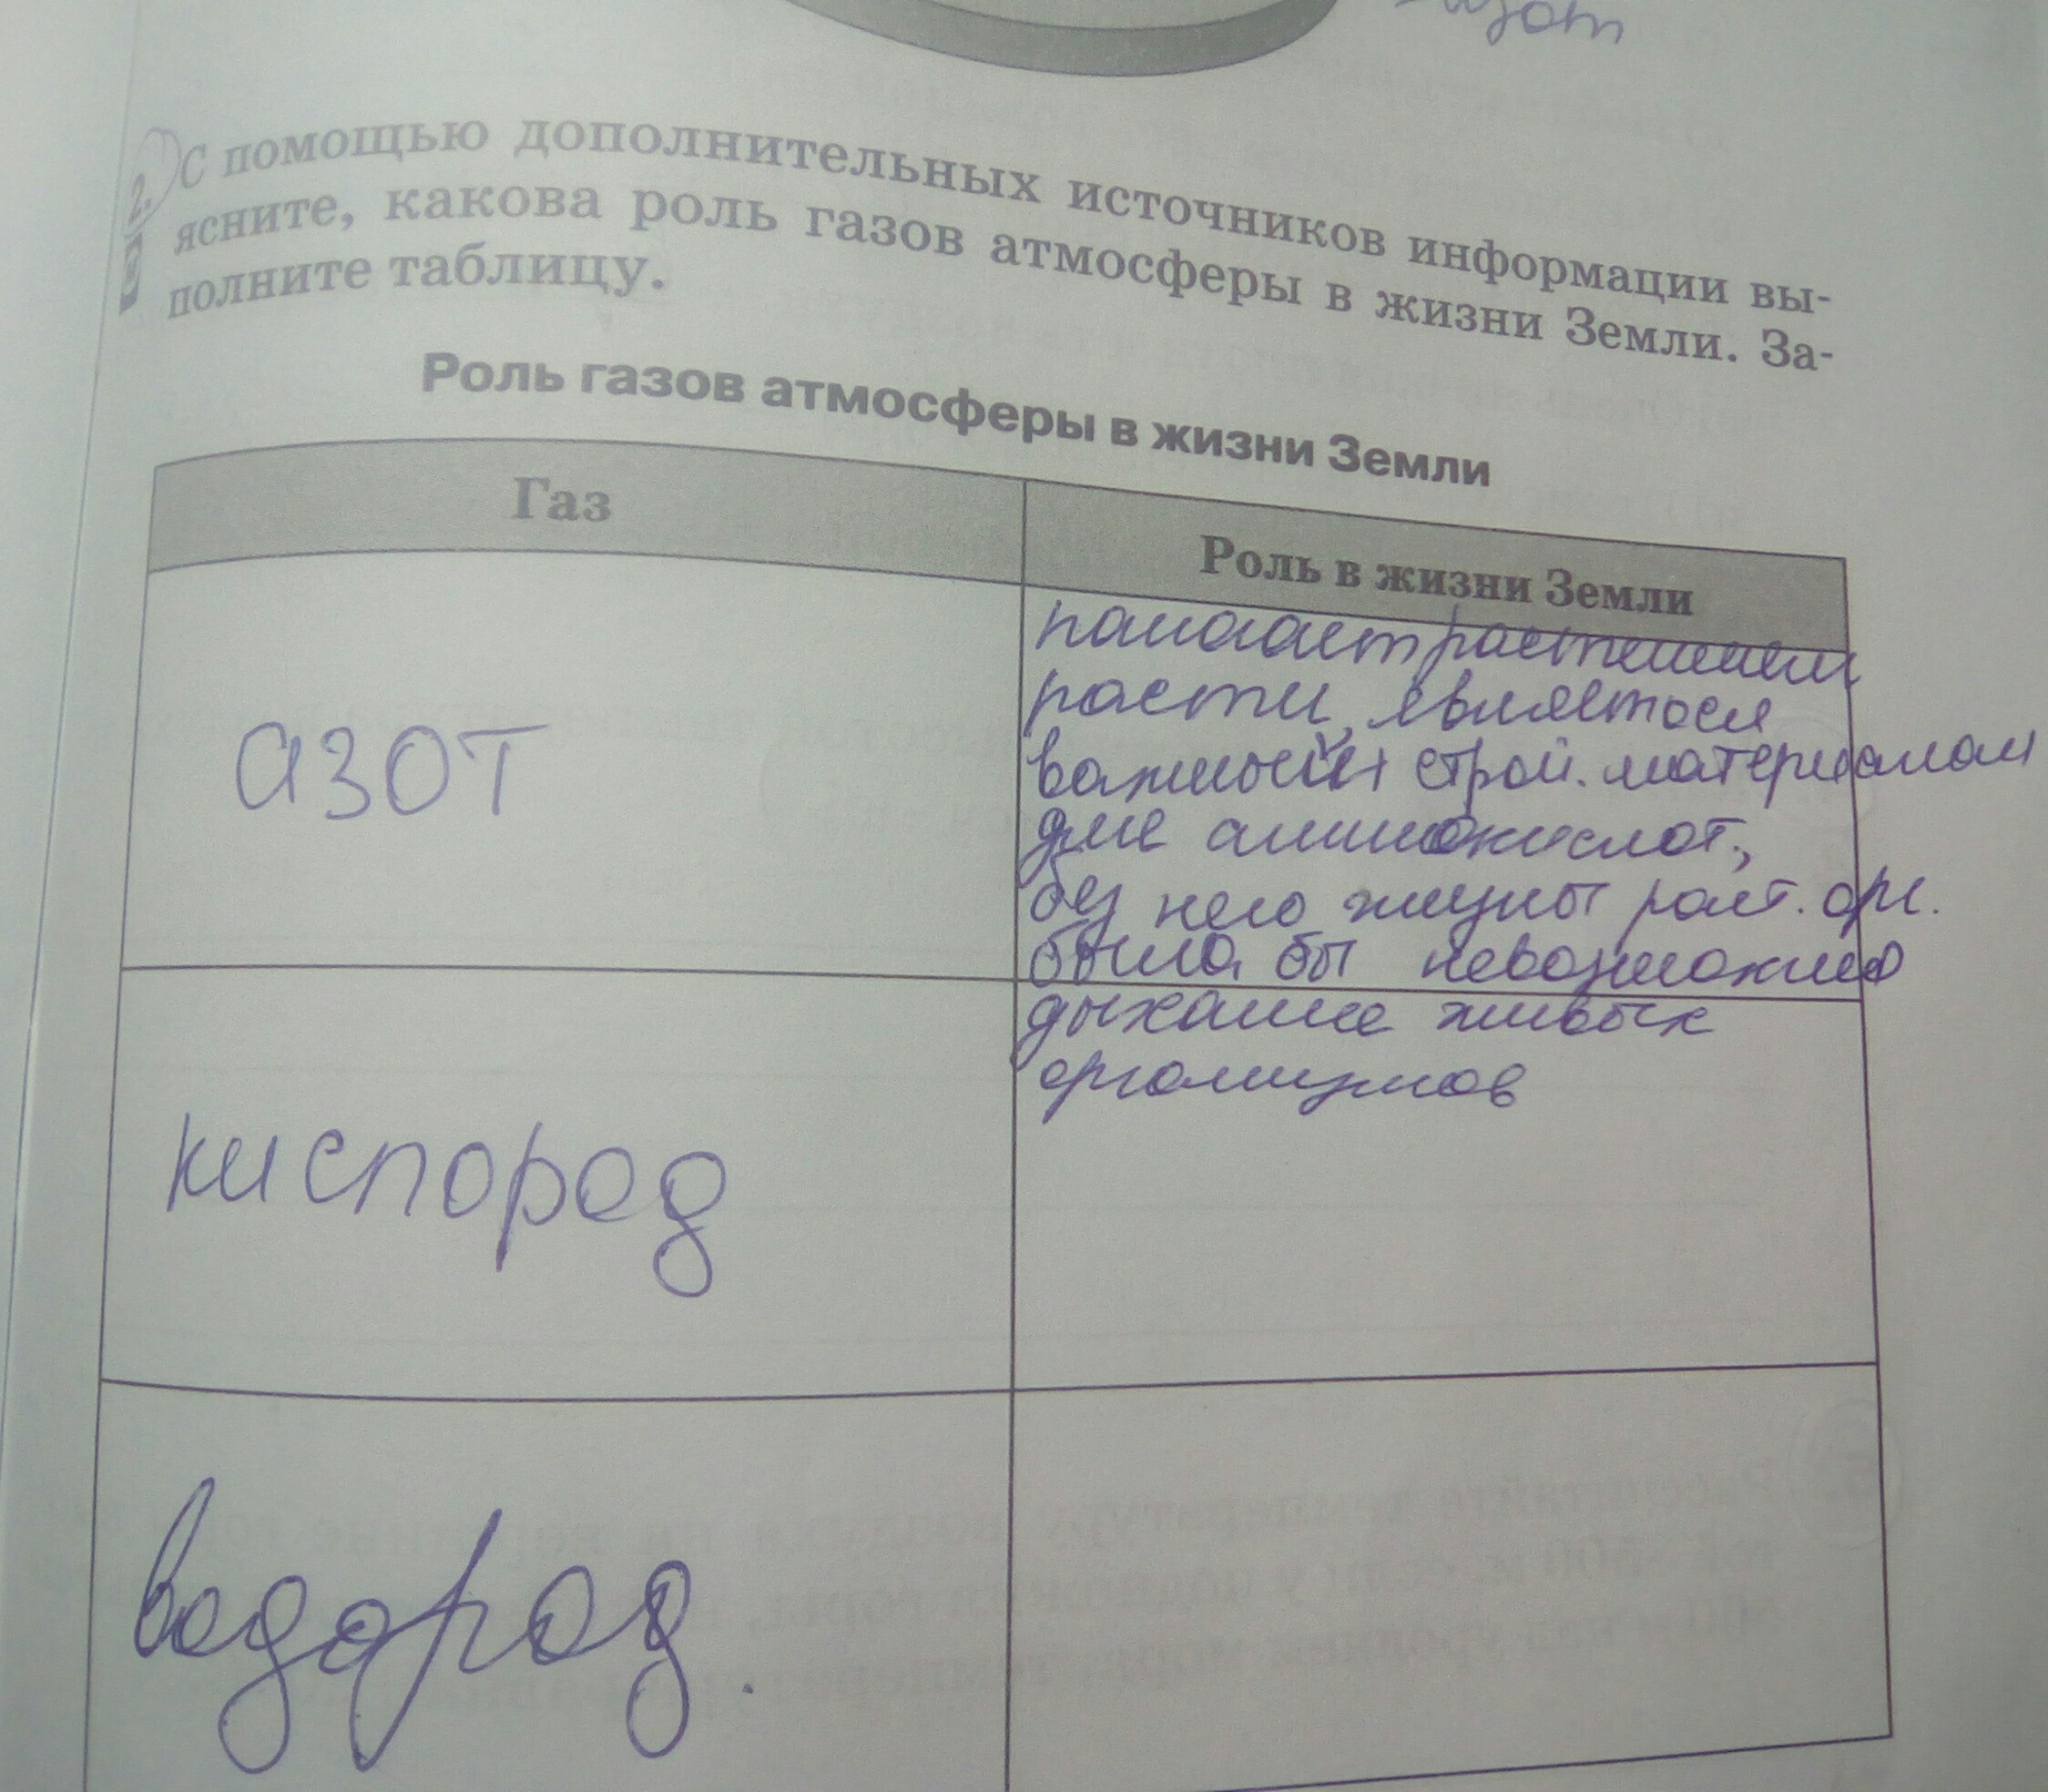 азот
2. С помощью дополнительных источников информации вы-
ясните, какова роль газов атмосферы в жизни Земли. За-
полните таблицу.
Роль газов атмосферы в жизни Земли
Газ
Роль в жизни Земли
азот
помогает растениям
расти, являеться
важный строй. материалом
для аминокислот,
без него жизнь раст. орг.
была бы невозможно
кислород
дыхание живых
организмов
водород.